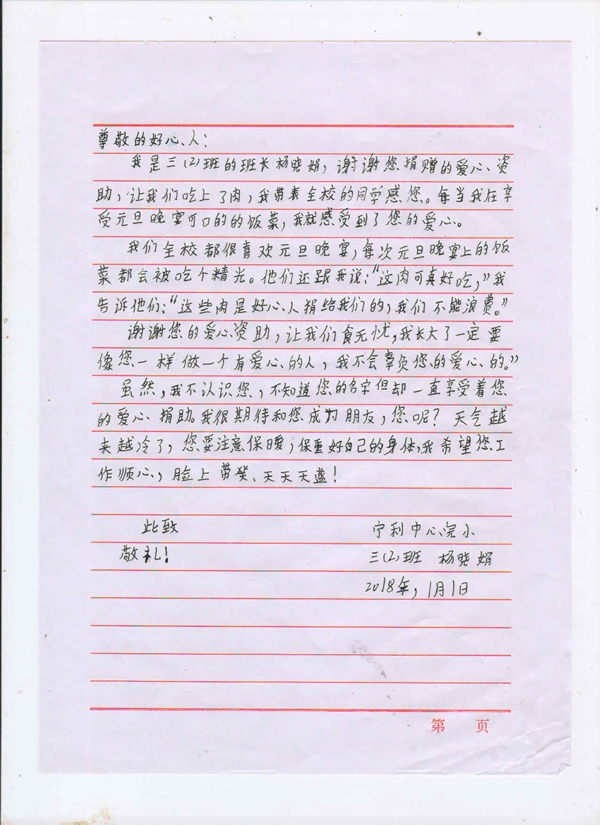 尊敬的好心人：
我是三(2)班的班长杨晓娟，谢谢您捐赠的爱心资
助，让我们吃上了肉，我带表全校的同学感您。每当我在享
受元旦晚宴可口的的饭菜，我就感受到了您的爱心。
我们全校都很喜欢元旦晚宴，每次元旦晚宴上的饭
菜都会被吃个精光。他们还跟我说："这肉可真好吃，"我
告诉他们："这些肉是好心人捐给我们的，我们不能浪费。"
谢谢您的爱心资助，让我们食无忧，我长大了一定要
像您一样做一个有爱心的人，我不会辜负您的爱心的。"
虽然，我不认识您，不知道您的名字但却一直享受着您
的爱心捐助。我很期待和您成为朋友，您呢？天气越
来越冷了，您要注意保暖；保重好自己的身体，我希望您工
作顺心，脸上带笑、天天天
此致 宁利中心完小
敬礼！ 三(2)班 杨晓娟
2018年，1月1日
第 页